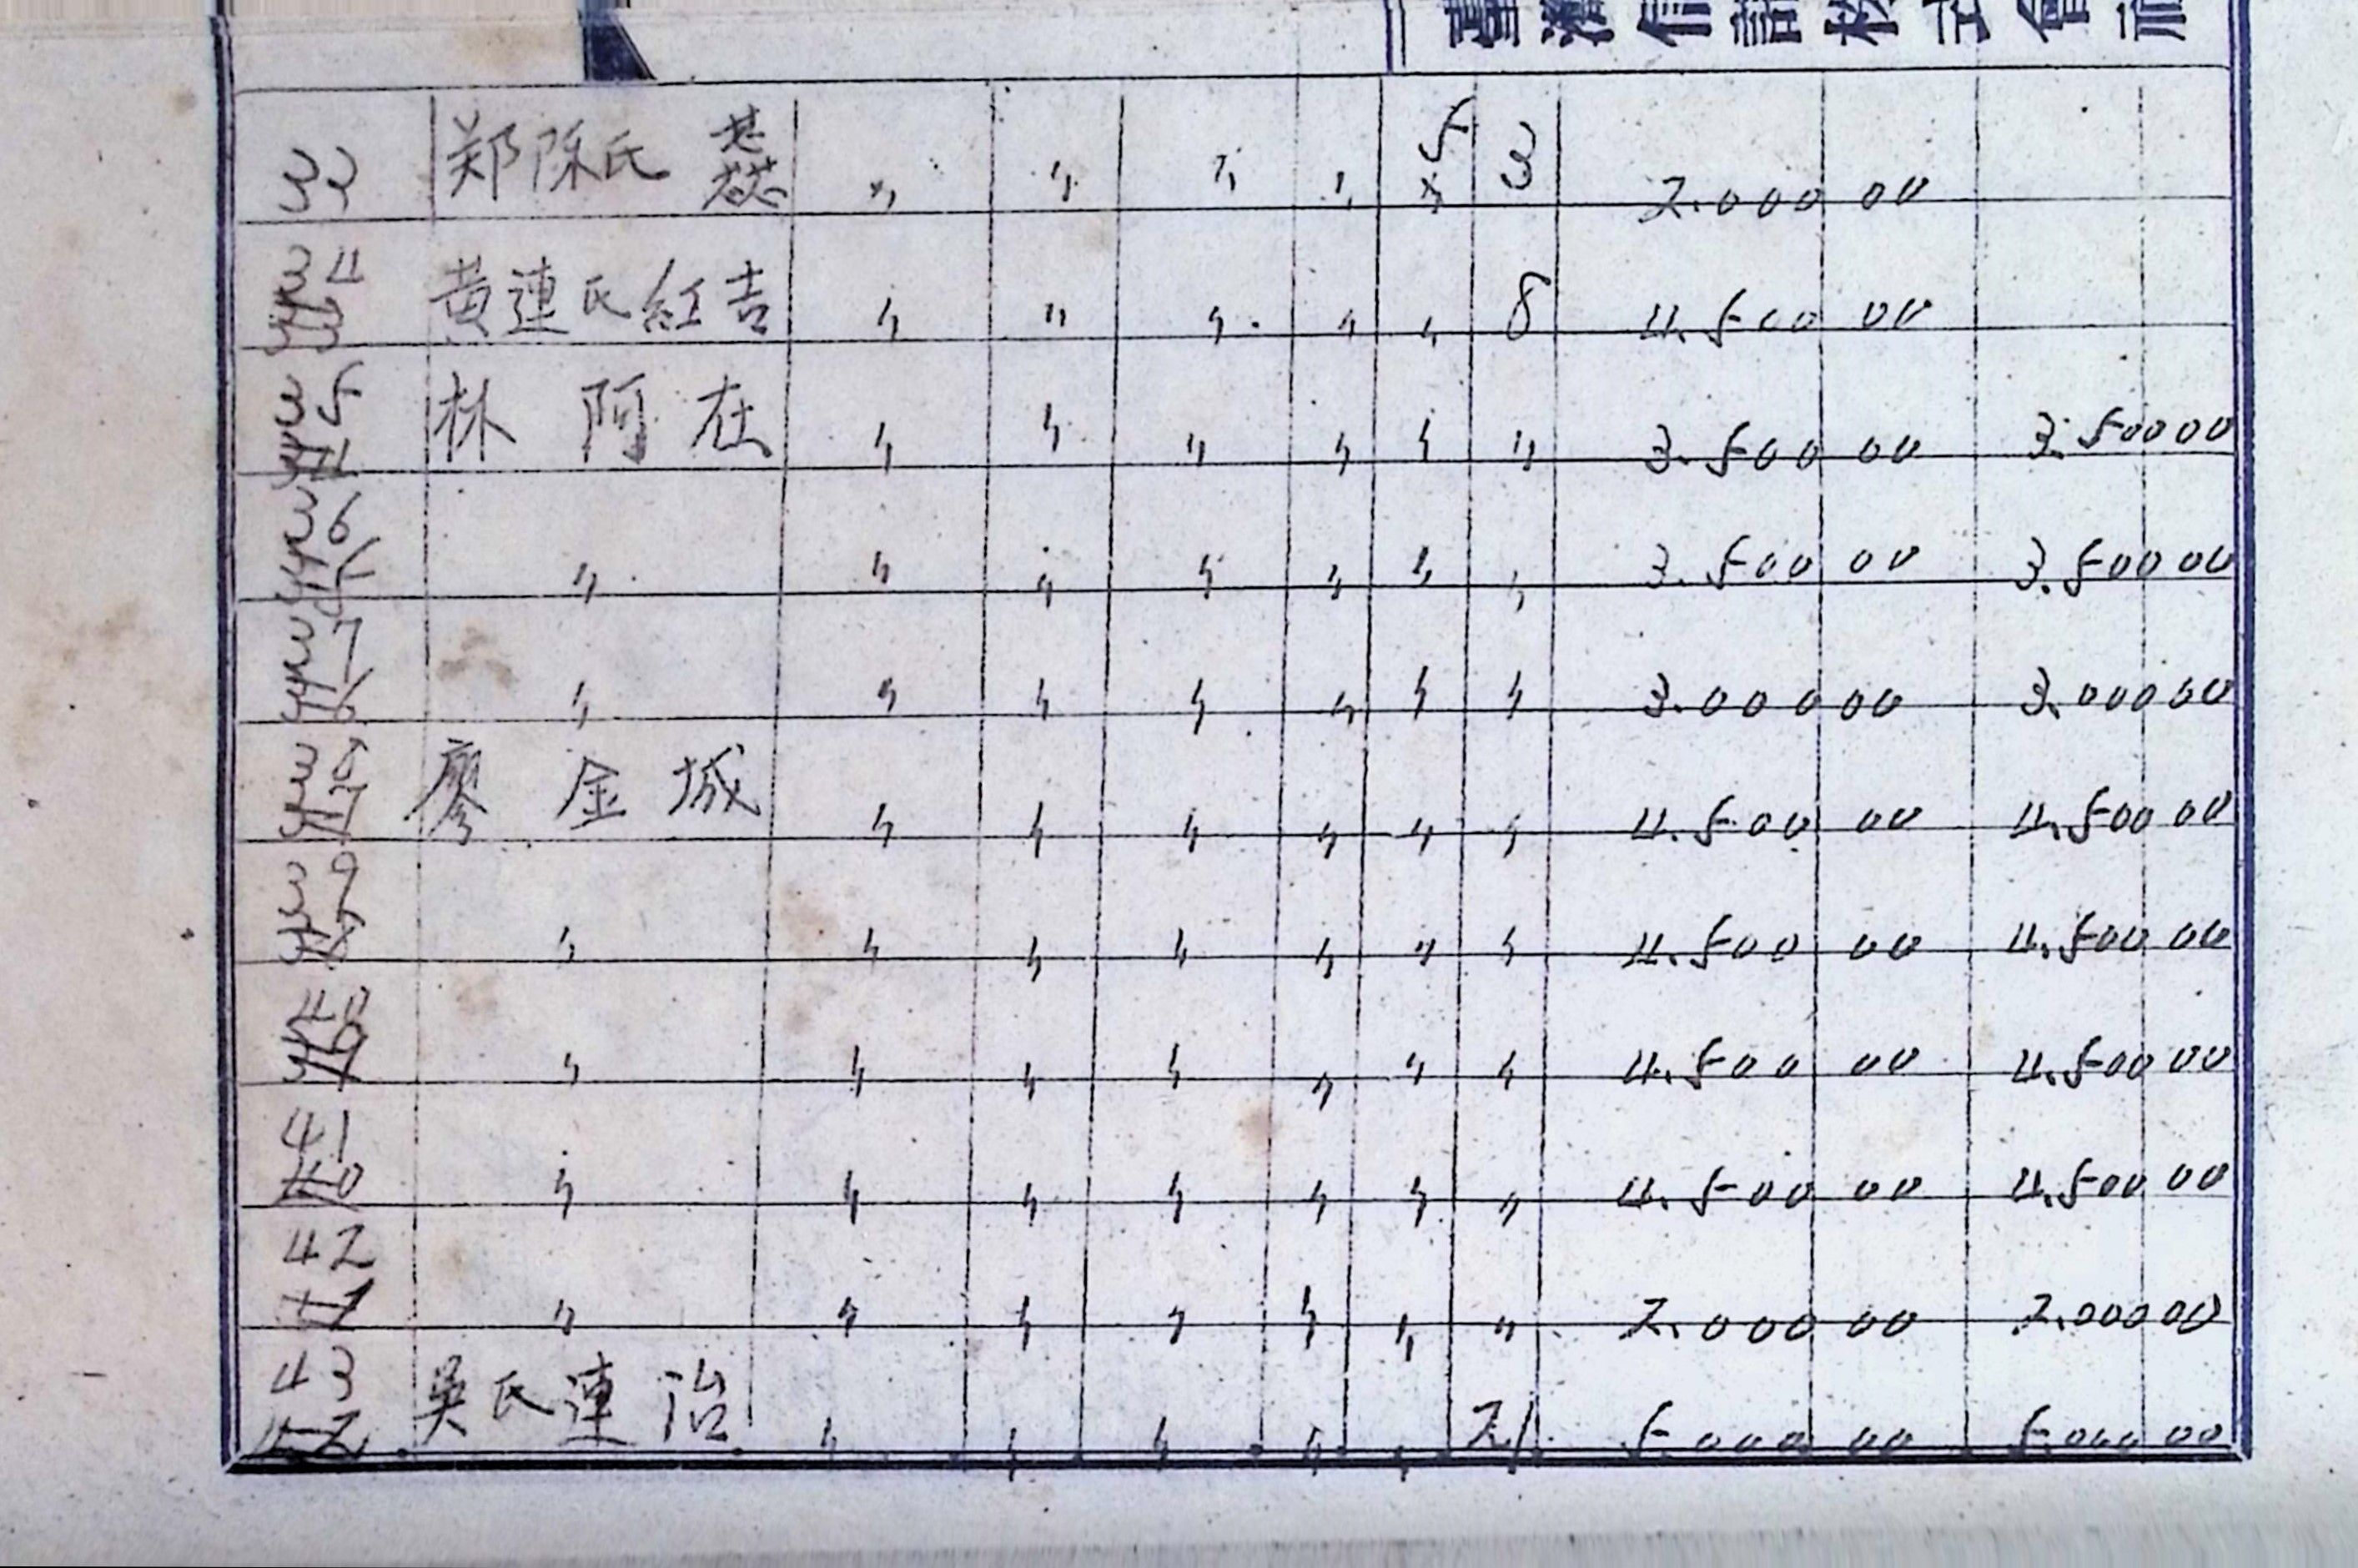 臺灣信託株式會社
33 鄭陳氏 〃 〃 〃 〃 5 3 2.000 00
34 33 黄連氏紅吉 〃 〃 〃 〃 〃 8 4.500 00
35 34 林阿在 〃 〃 〃 〃 〃 〃 3.500 00 3.500 00
36 35 〃 〃 〃 〃 〃 〃 〃 3.500 00 3.500 00
37 36 〃 〃 〃 〃 〃 〃 〃 3.000 00 3.000 00
38 37 廖金城 〃 〃 〃 〃 〃 〃 4.500 00 4.500 00
39 38 〃 〃 〃 〃 〃 〃 〃 4.500 00 4.500 00
40 39 〃 〃 〃 〃 〃 〃 〃 4.500 00 4.500 00
41 40 〃 〃 〃 〃 〃 〃 〃 4.500 00 4.500 00
42 41 〃 〃 〃 〃 〃 〃 〃 2.000 00 2.000 00
43 42 吳氏連治 〃 〃 〃 〃 〃 21 5.000 00 5.000 00